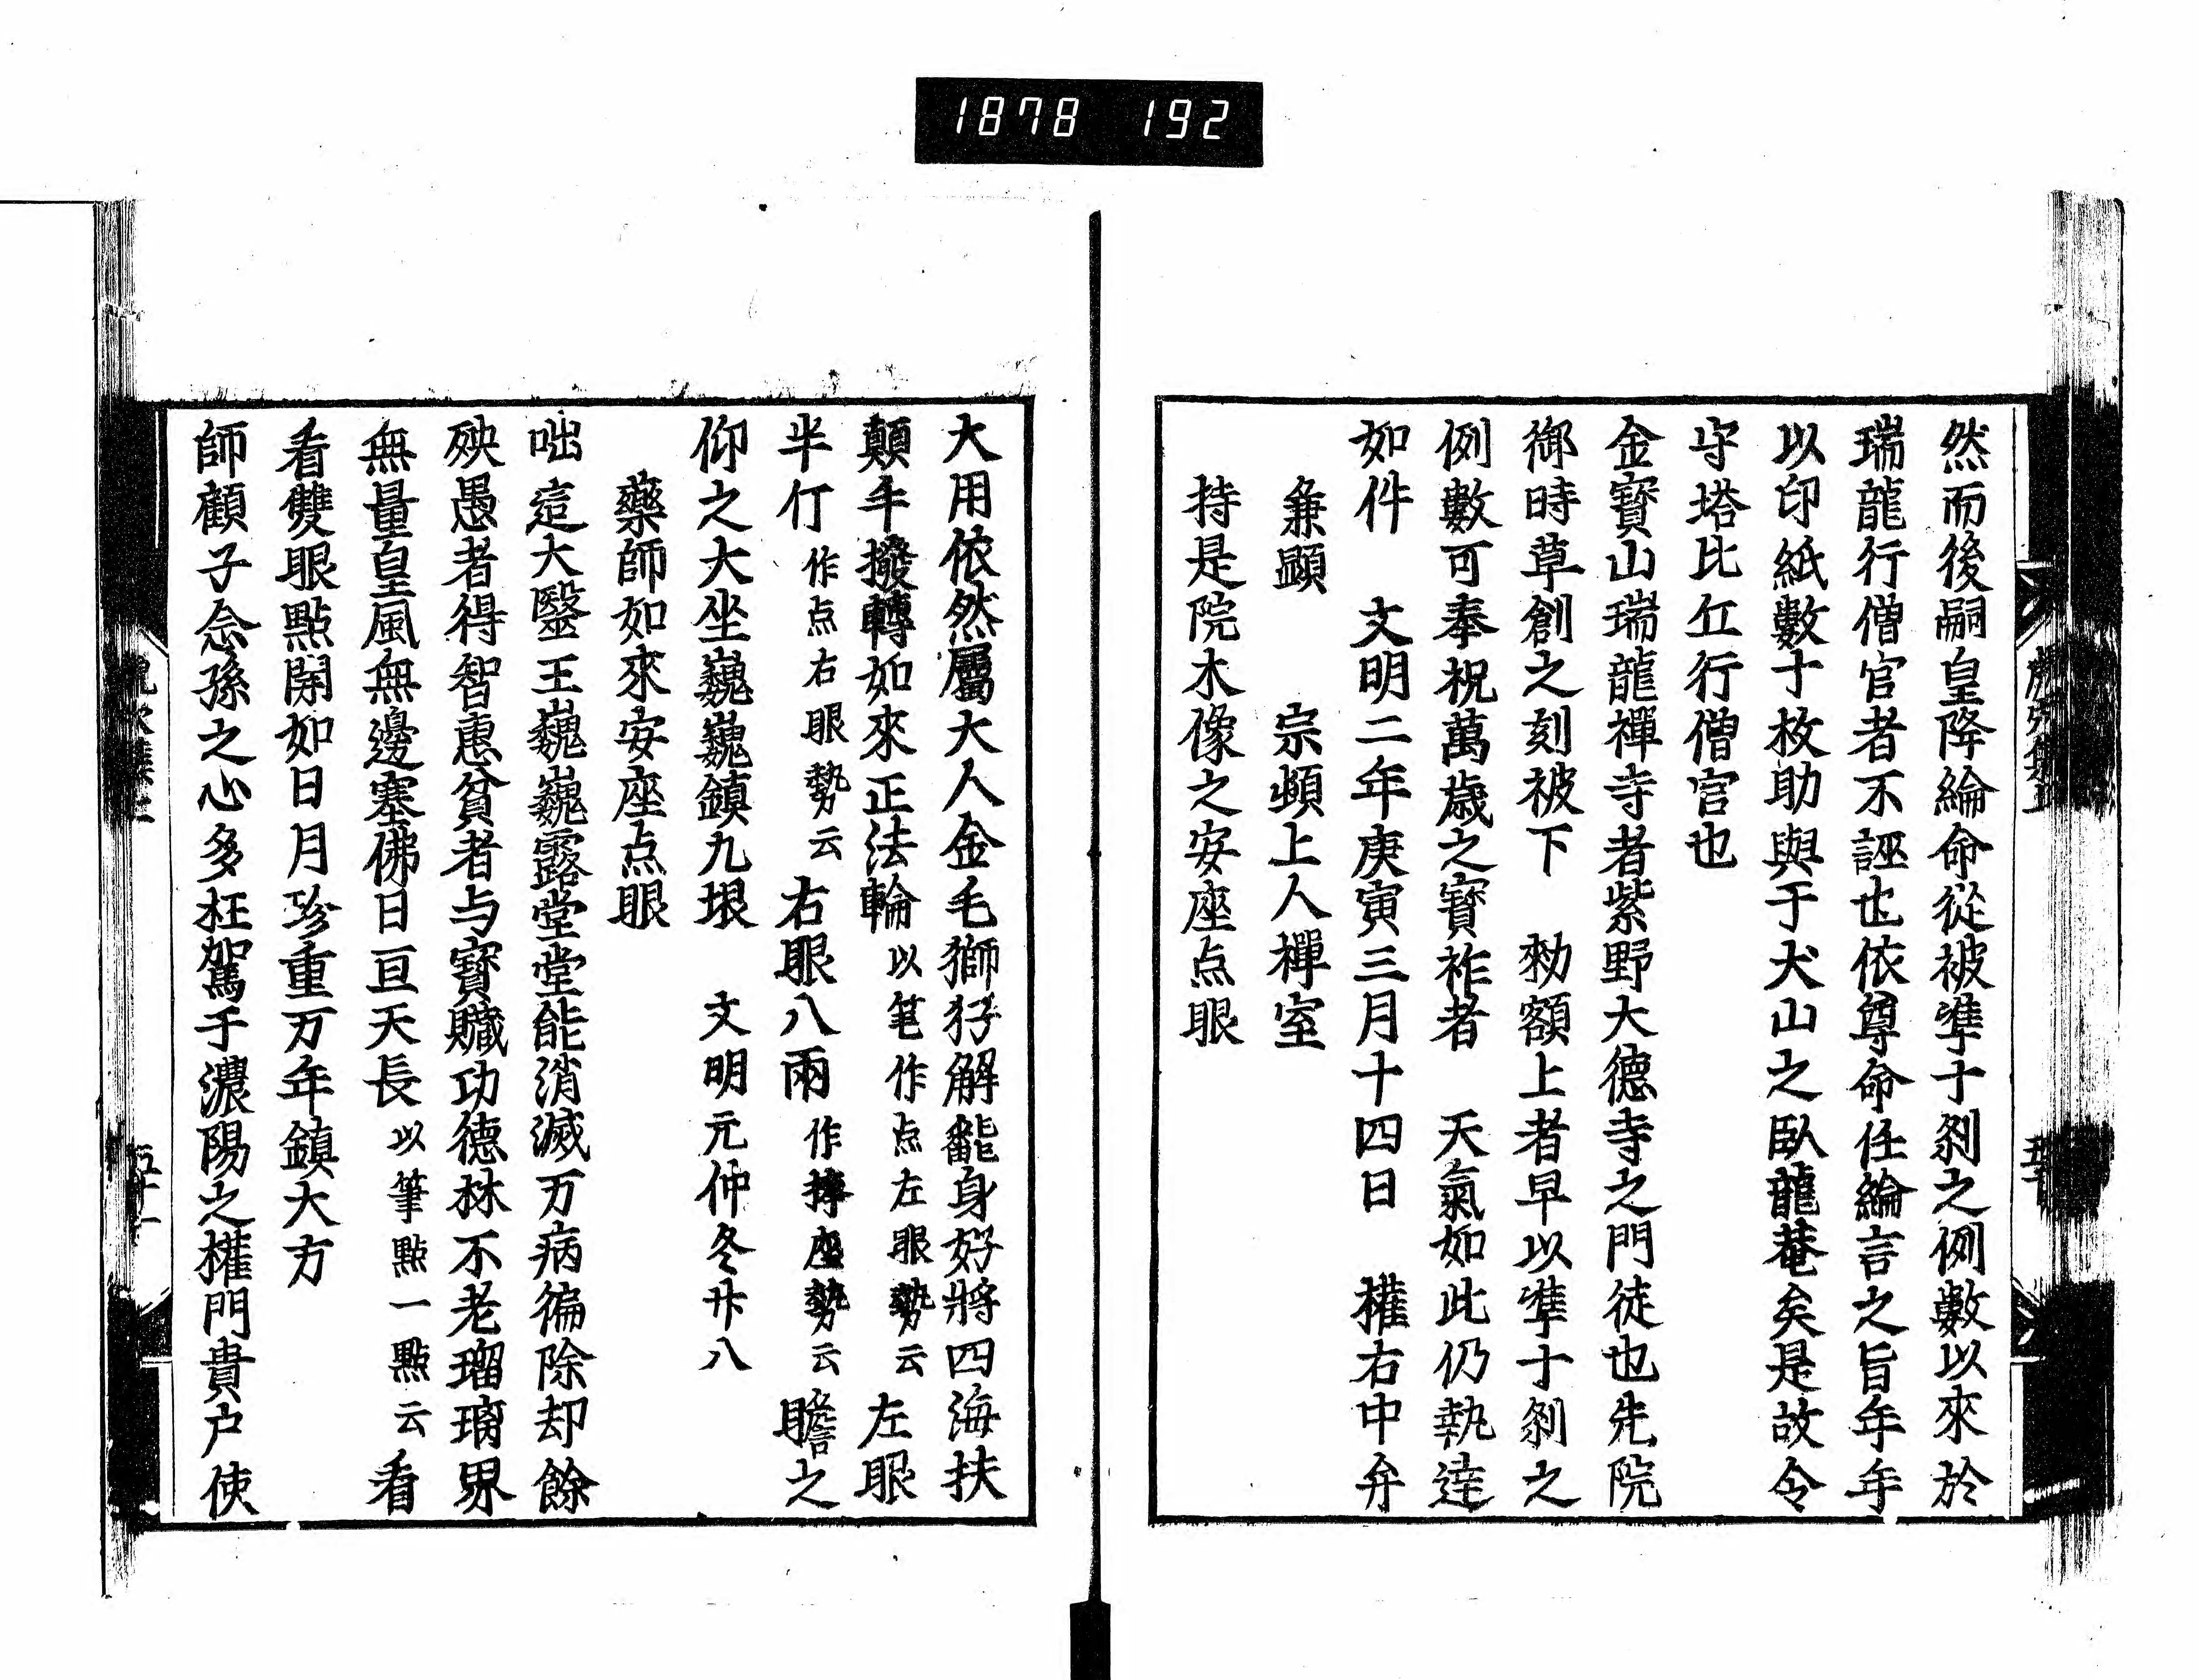 1878 192
然而後嗣皇降綸命從被準十刹之例數以來於
瑞龍行僧官者不誣也依尊命任綸言之旨年年
以印紙數十枚助與于犬山之臥龍菴矣是故令
守塔比丘行僧官也
金寶山瑞龍禪寺者紫野大德寺之門徒也先院
御時草創之刻被下 勅額上者早以準十刹之
例數可奉祝萬歳之寶祚者 天氣如此仍執達
如件 文明二年庚寅三月十四日 權右中弁
兼顕 宗頓上人禪室
持是院木像之安座点眼
大用依然屬大人金毛獅子解飜身好將四海扶
顛手撥轉如來正法輪以笔作点左眼勢云左眼
半仃作点右眼勢云右眼八兩作摶座勢云瞻之
仰之大坐巍巍鎮九垠 文明元仲冬廾八
藥師如來安座点眼
咄這大毉王巍巍露堂堂能消滅万病徧除却餘
殃愚者得智恵貧者与寶贓功德林不老瑠璃界
無量皇風無邊塞佛日亘天長以筆點一點云看
看雙眼點開如日月珍重万年鎮大方
師顧子念孫之心多枉駕于濃陽之權門貴户使